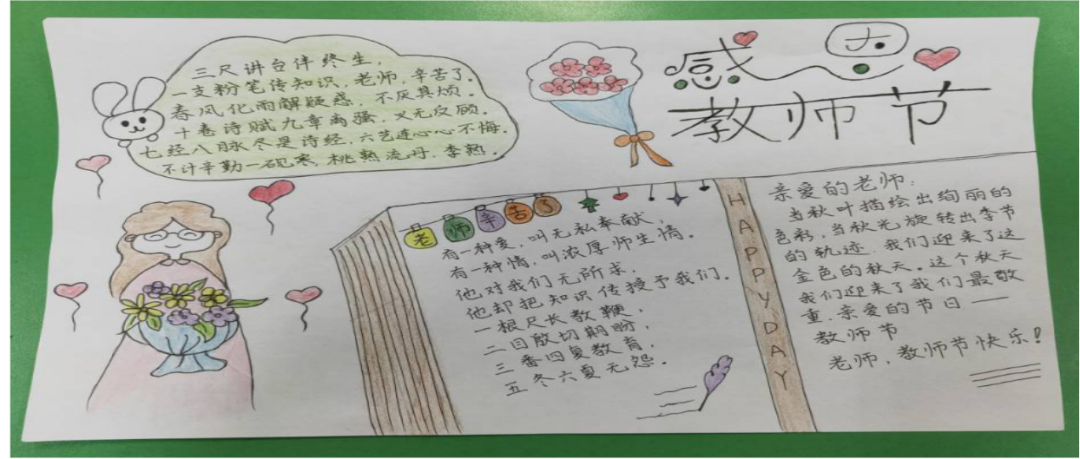 感恩
教师节
三尺讲台伴终生,
一支粉笔传知识,老师,辛苦了。
春风化雨解疑惑,不厌其烦。
十卷诗赋九章离骚,义无反顾。
七经八脉尽是诗经,六艺连心心不悔。
不计辛勤一砚寒,桃熟流丹,李熟。
老师辛苦了
有一种爱,叫无私奉献,
有一种情,叫浓厚师生情。
他对我们无所求,
他却把知识传授予我们。
一根尺长教鞭,
二目殷切期盼,
三番四复教育,
五冬六夏无怨。
HAPPYDAY
亲爱的老师:
当秋叶描绘出绚丽的
色彩,当秋光旋转出季节
的轨迹,我们迎来了这
金色的秋天。这个秋天
我们迎来了我们最敬
重、亲爱的节日——
教师节
老师,教师节快乐!